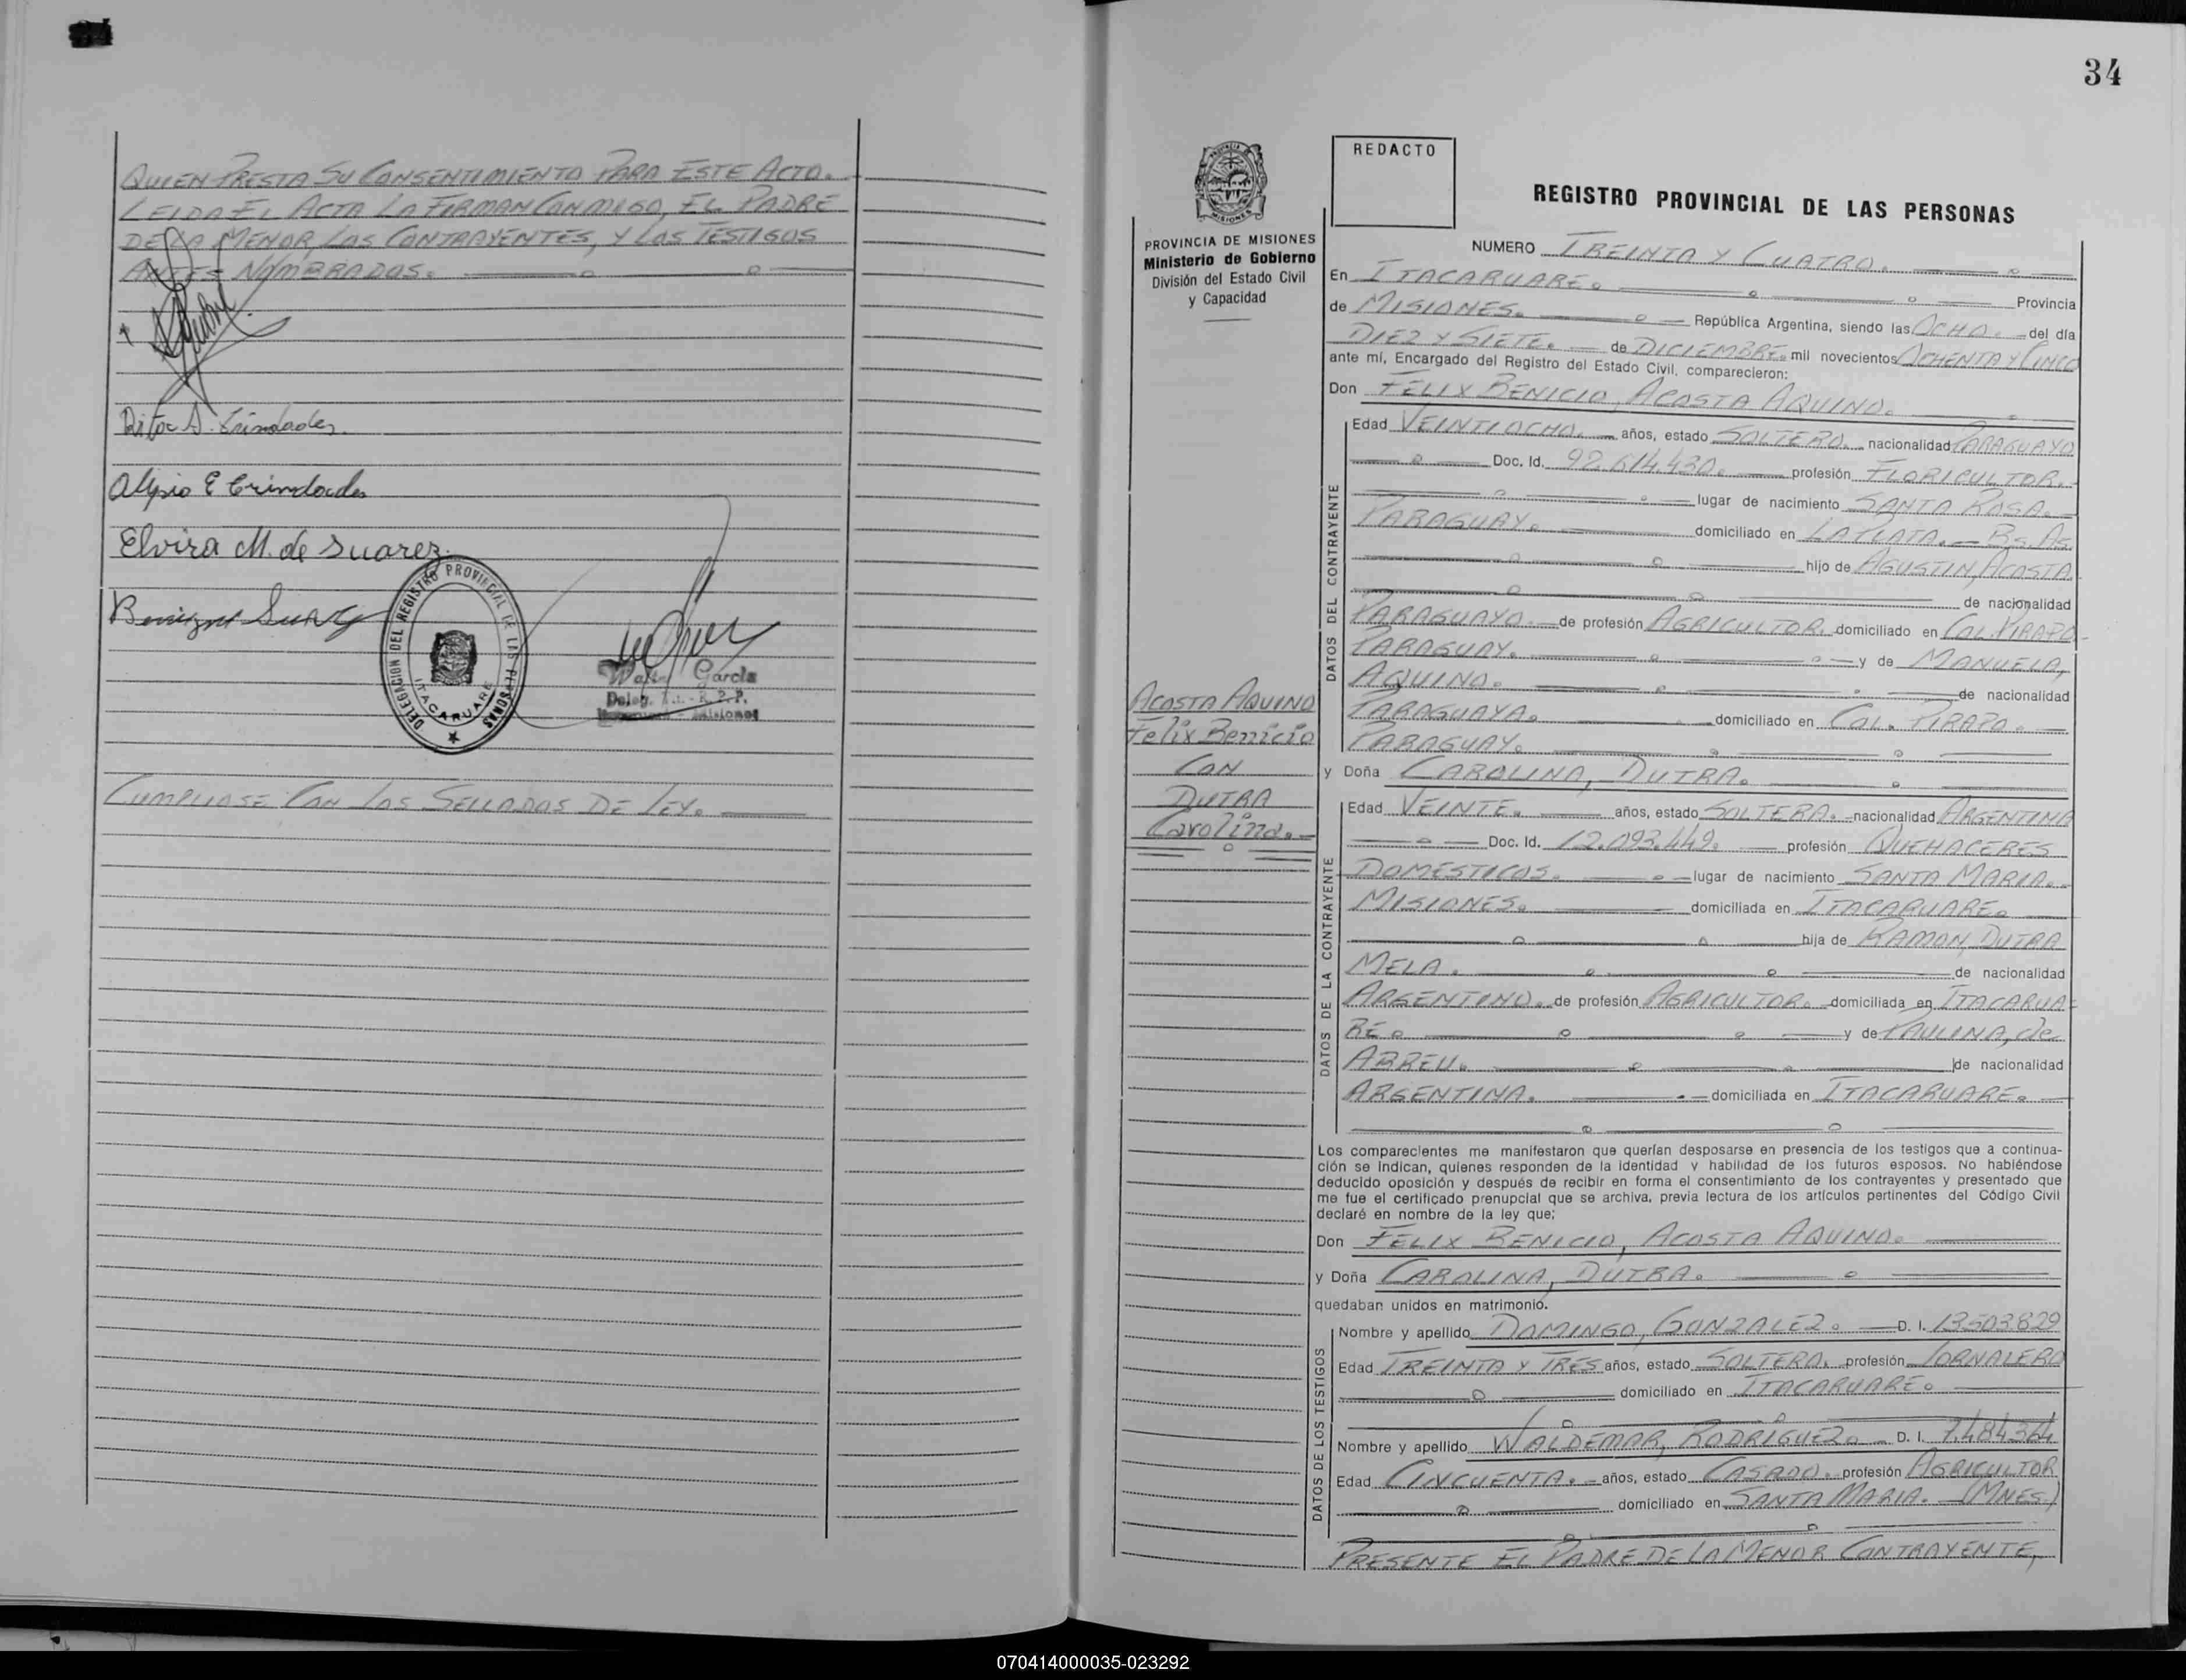 QUIEN PRESTA SU CONSENTIMIENTO PARA ESTE ACTO.
LEIDA EL ACTA LA FIRMAN CONMIGO, EL PADRE
DE LA MENOR, LOS CONTRAYENTES, Y LOS TESTIGOS
ANTES NOMBRADOS.
Alipio E Trindades
Elvira M. de Suarez
DELEGACION DEL REGISTRO PROVINCIAL DE LAS PERSONAS
ITACARUARE
García
Deleg.
CUMPLIASE CON LOS SELLADOS DE LEY.
34
PROVINCIA DE MISIONES
Ministerio de Gobierno
División del Estado Civil
y Capacidad
ACOSTA AQUINO
Felix Benicio
CON
DUTRA
Carolina.
REDACTO
REGISTRO PROVINCIAL DE LAS PERSONAS
NUMERO TREINTA Y CUATRO.
En ITACARUARE. Provincia
de MISIONES. República Argentina, siendo las OCHO. del día
DIEZ Y SIETE. de DICIEMBRE. mil novecientos OCHENTA Y CINCO
ante mí, Encargado del Registro del Estado Civil, comparecieron:
Don FELIX BENICIO, ACOSTA AQUINO.
DATOS DEL CONTRAYENTE
Edad VEINTIOCHO. años, estado SOLTERO. nacionalidad PARAGUAYO
Doc. Id. 92.614.430. profesión FLORICULTOR.
lugar de nacimiento SANTA ROSA.
PARAGUAY. domiciliado en LA PLATA. Bs. As.
hijo de AGUSTIN, ACOSTA.
de nacionalidad
PARAGUAYO. de profesión AGRICULTOR. domiciliado en COL. PIRAPO
PARAGUAY. y de MANUELA,
AQUINO. de nacionalidad
PARAGUAYA. domiciliado en COL. PIRAPO.
PARAGUAY.
y Doña CAROLINA, DUTRA.
DATOS DE LA CONTRAYENTE
Edad VEINTE. años, estado SOLTERA. nacionalidad ARGENTINA
Doc. Id. 12.093.449. profesión QUEHACERES
DOMESTICOS. lugar de nacimiento SANTA MARIA.
MISIONES. domiciliada en ITACARUARE.
hija de RAMON, DUTRA
MELA. de nacionalidad
ARGENTINO. de profesión AGRICULTOR. domiciliada en ITACARUA=
RE. y de PAULINA, de
ABREU. de nacionalidad
ARGENTINA. domiciliada en ITACARUARE.
Los comparecientes me manifestaron que querían desposarse en presencia de los testigos que a continua-
ción se indican, quienes responden de la identidad y habilidad de los futuros esposos. No habiéndose
deducido oposición y después de recibir en forma el consentimiento de los contrayentes y presentado que
me fue el certificado prenupcial que se archiva, previa lectura de los artículos pertinentes del Código Civil
declaré en nombre de la ley que:
Don FELIX BENICIO, ACOSTA AQUINO.
y Doña CAROLINA, DUTRA.
quedaban unidos en matrimonio.
DATOS DE LOS TESTIGOS
Nombre y apellido DOMINGO, GONZALEZ. D. I. 13.503.829
Edad TREINTA Y TRES años, estado SOLTERO. profesión JORNALERO
domiciliado en ITACARUARE.
Nombre y apellido WALDEMAR, RODRIGUEZ. D. I. 7.484.364
Edad CINCUENTA. años, estado CASADO. profesión AGRICULTOR
domiciliado en SANTA MARIA. (MNES)
PRESENTE EL PADRE DE LA MENOR CONTRAYENTE,
070414000035-023292